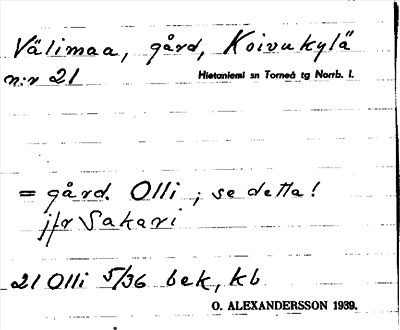 Välimaa, gård, Koivukylä
n:r 21 Hietaniemi sn Torneå tg Norrb. l.
= gård. Olli ; se detta!
jfr Sakari
21 Olli 5/36 bek, kb
O. ALEXANDERSSON 1939.